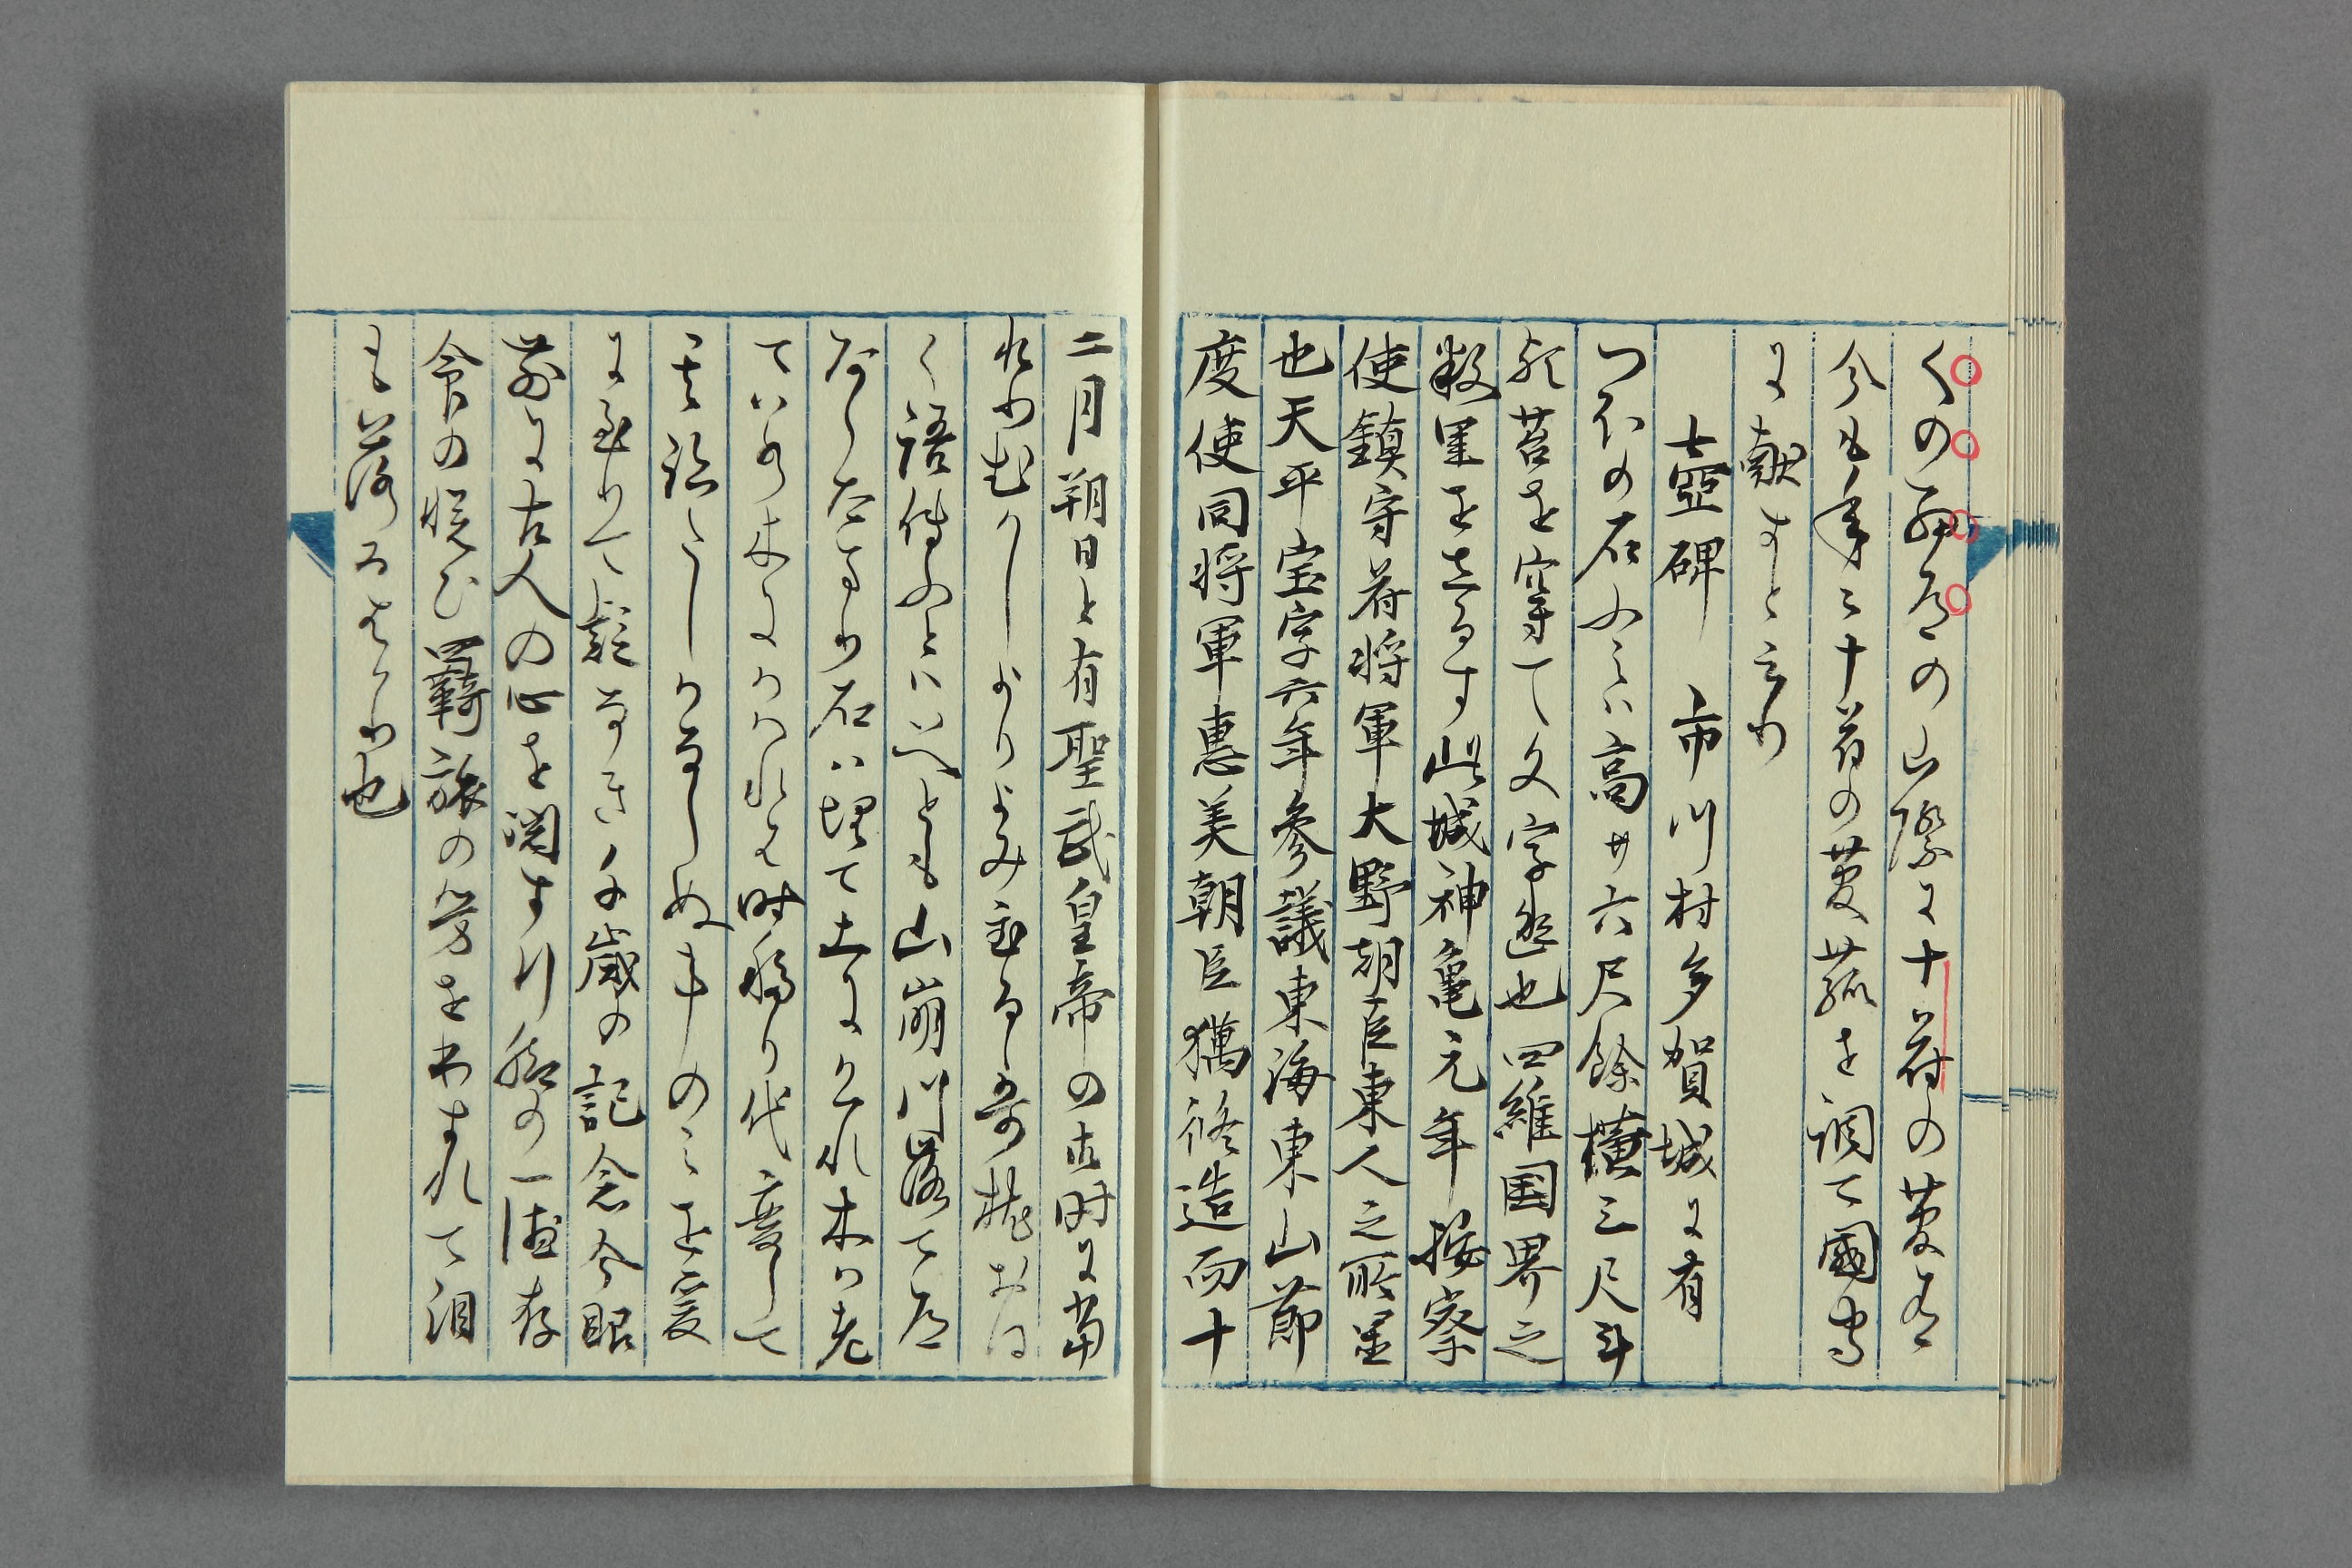 くの細道の山際に十符の菅有
今も年々十符の菅菰を調て國守
に献すと云り
壺碑　市川村多賀城に有
つほの石ふみハ高サ六尺餘横三尺斗
歟苔を穿て文字幽也四維国界之
数里をしるす此城神亀元年按察
使鎮守府将軍大野朝臣東人之所里
也天平宝字六年参議東海東山節
度使同将軍恵美朝臣獦修造而十
二月朔日と有聖武皇帝の御時に當
れりむかしよりよみ置る哥枕おほ
く語傳ふといへとも山崩川落て道
あらたまり石ハ埋て土にかくれ木ハ老
てハ若木にかハれは時移り代変して
其跡たしかならぬ事のミを爰
に至りて疑なき千歳の記念今眼
前に古人の心を閲す行脚の一徳存
命の悦ひ羇旅の労をわすれて泪
も落るはかり也